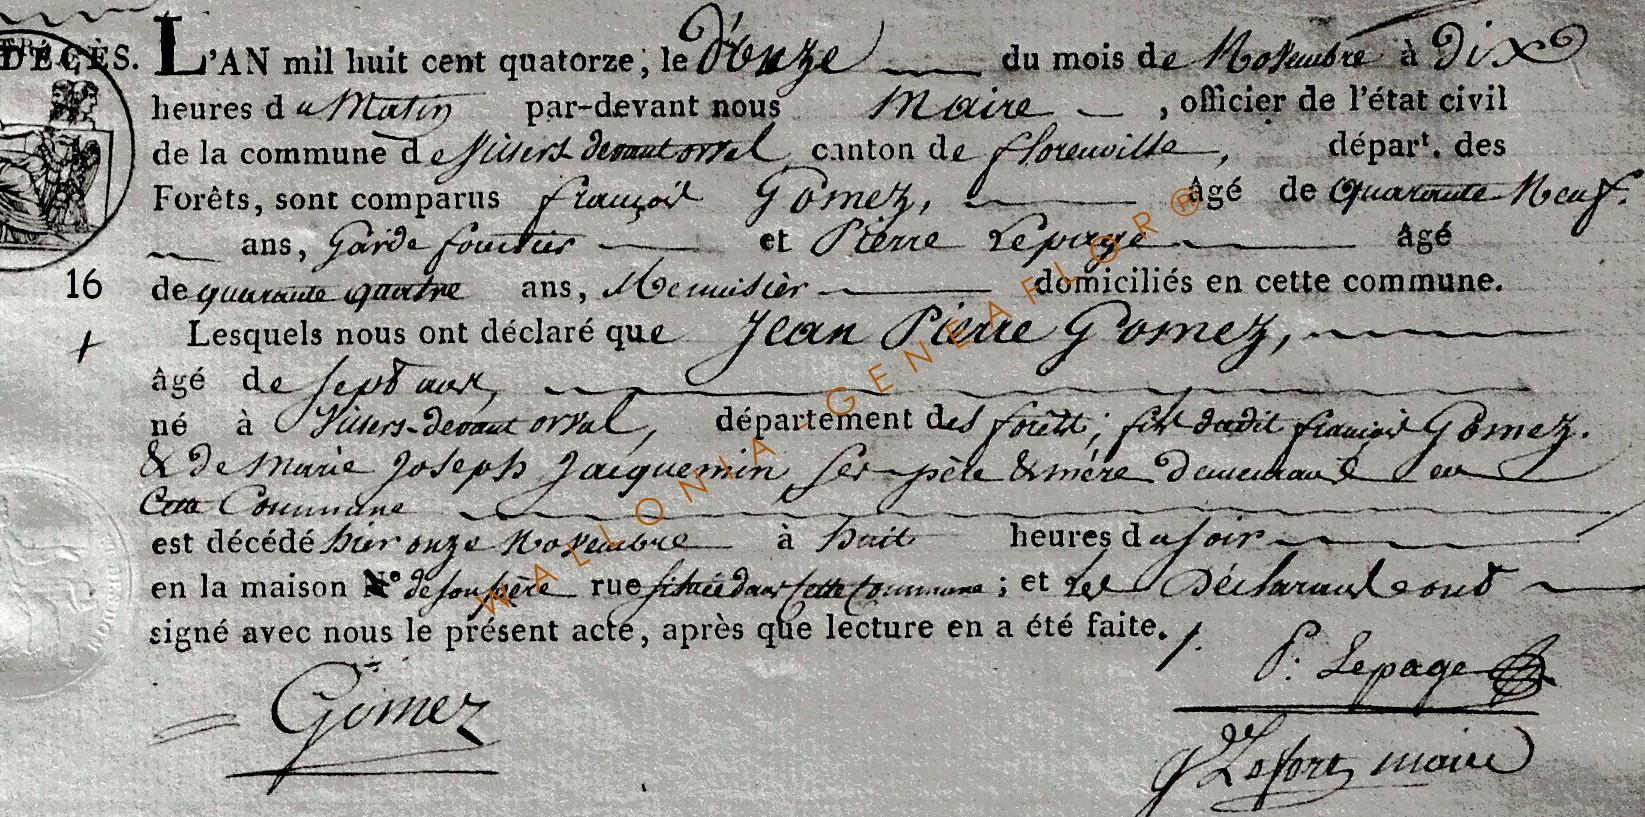 DÉCÈS. L'AN mil huit cent quatorze, le Douze du mois de Novembre à Dix
heures du Matin par-devant nous Maire, officier de l'état civil
de la commune de Villers devant orval, canton de florenville, départ. des
Forêts, sont comparus françois Gomez, âgé de quarante Neuf.
ans, Garde foretier et Pierre Lepage âgé
16 de quarante quatre ans, Menuisier domiciliés en cette commune.
+ Lesquels nous ont déclaré que Jean Pierre Gomez,
âgé de sept ans,
né à Villers-devant orval, département des forêts; fils dudit françois Gomez.
& de Marie Joseph Jacquemin, ses père & mère demeurant en
Cette Commune
est décédé hier onze Novembre à huit heures du soir
en la maison N° de son père rue située dans cette Commune; et les Déclarants ont
signé avec nous le présent acte, après que lecture en a été faite. /.
P. Lepage
Gomez
Lefort, maire
WALLONIA - GENEAFLOR®